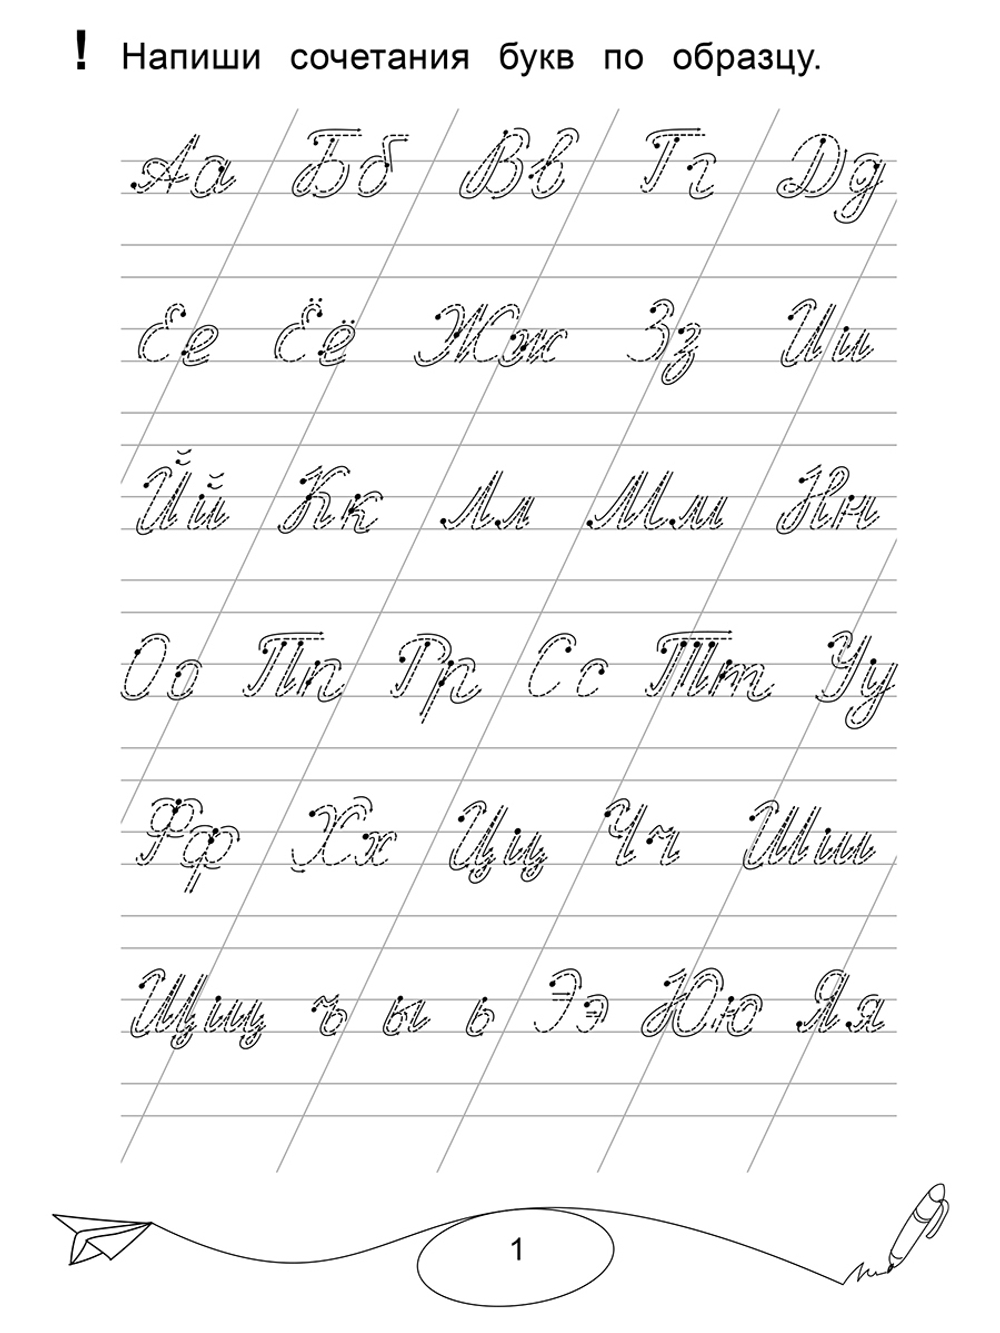 ! Напиши сочетания букв по образцу.
Аа Бб Вв Гг Дд
Ее Ёё Жж Зз Ии
Йй Кк Лл Мм Нн
Оо Пп Рр Сс Тт Уу
Фф Хх Цц Чч Шш
Щщ ъ ы ь Ээ Юю Яя
1